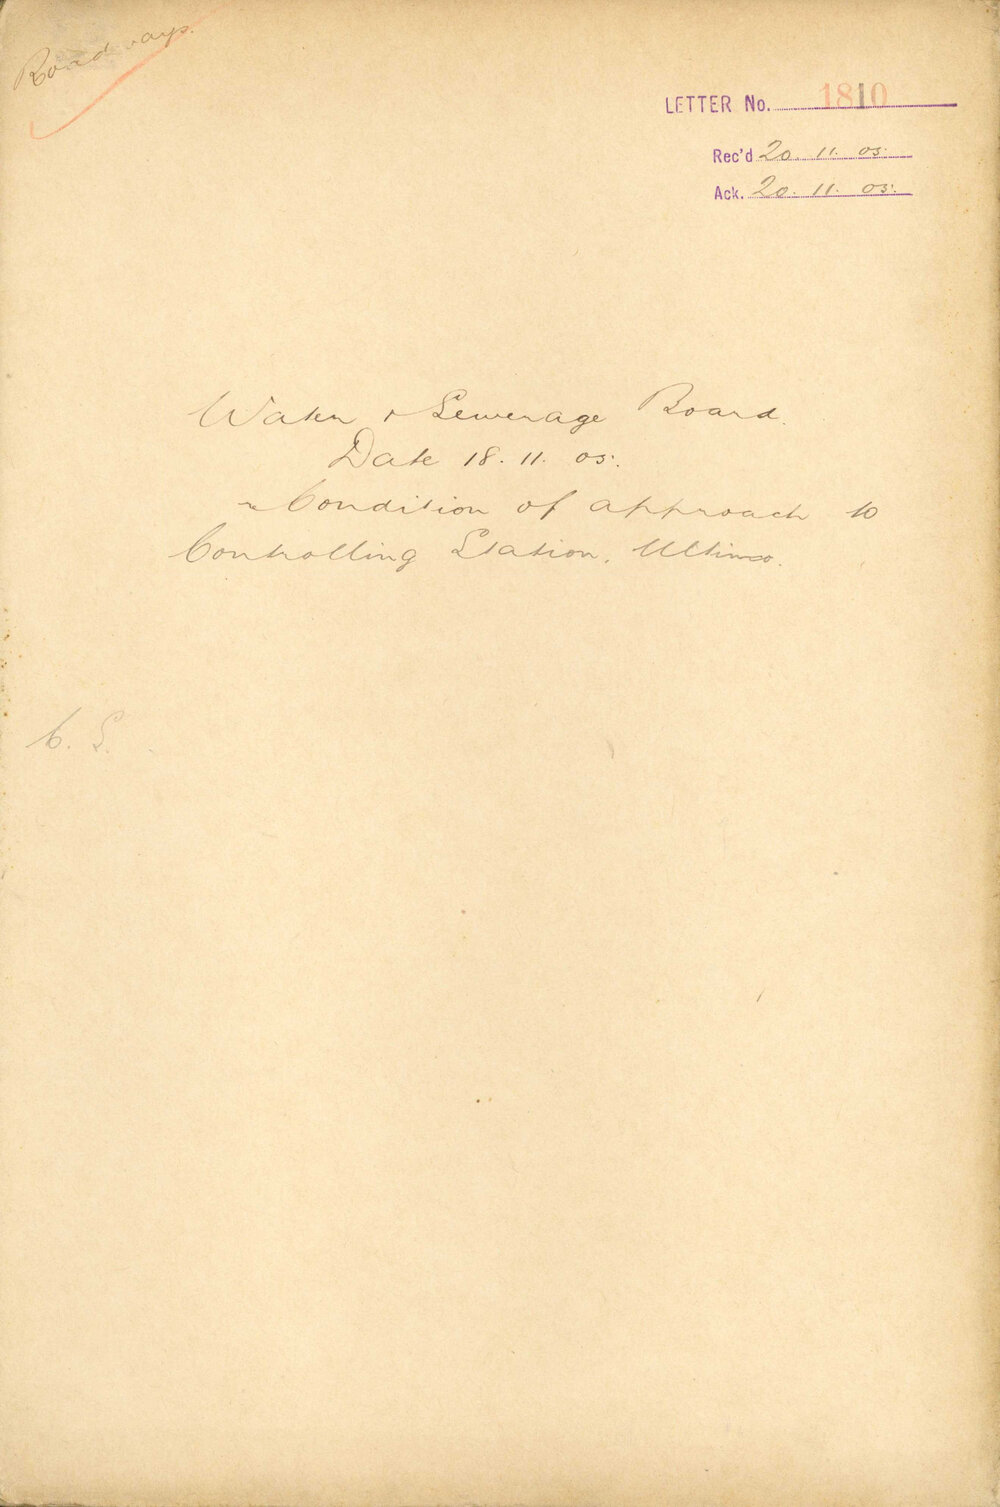 Roadways.
LETTER No. 1810
Rec'd 20. 11. 05.
Ack. 20. 11. 05.
Water & Sewerage Board.
Date 18. 11. 05.
re Condition of approach to
Controlling Station, Ultimo.
C. S.